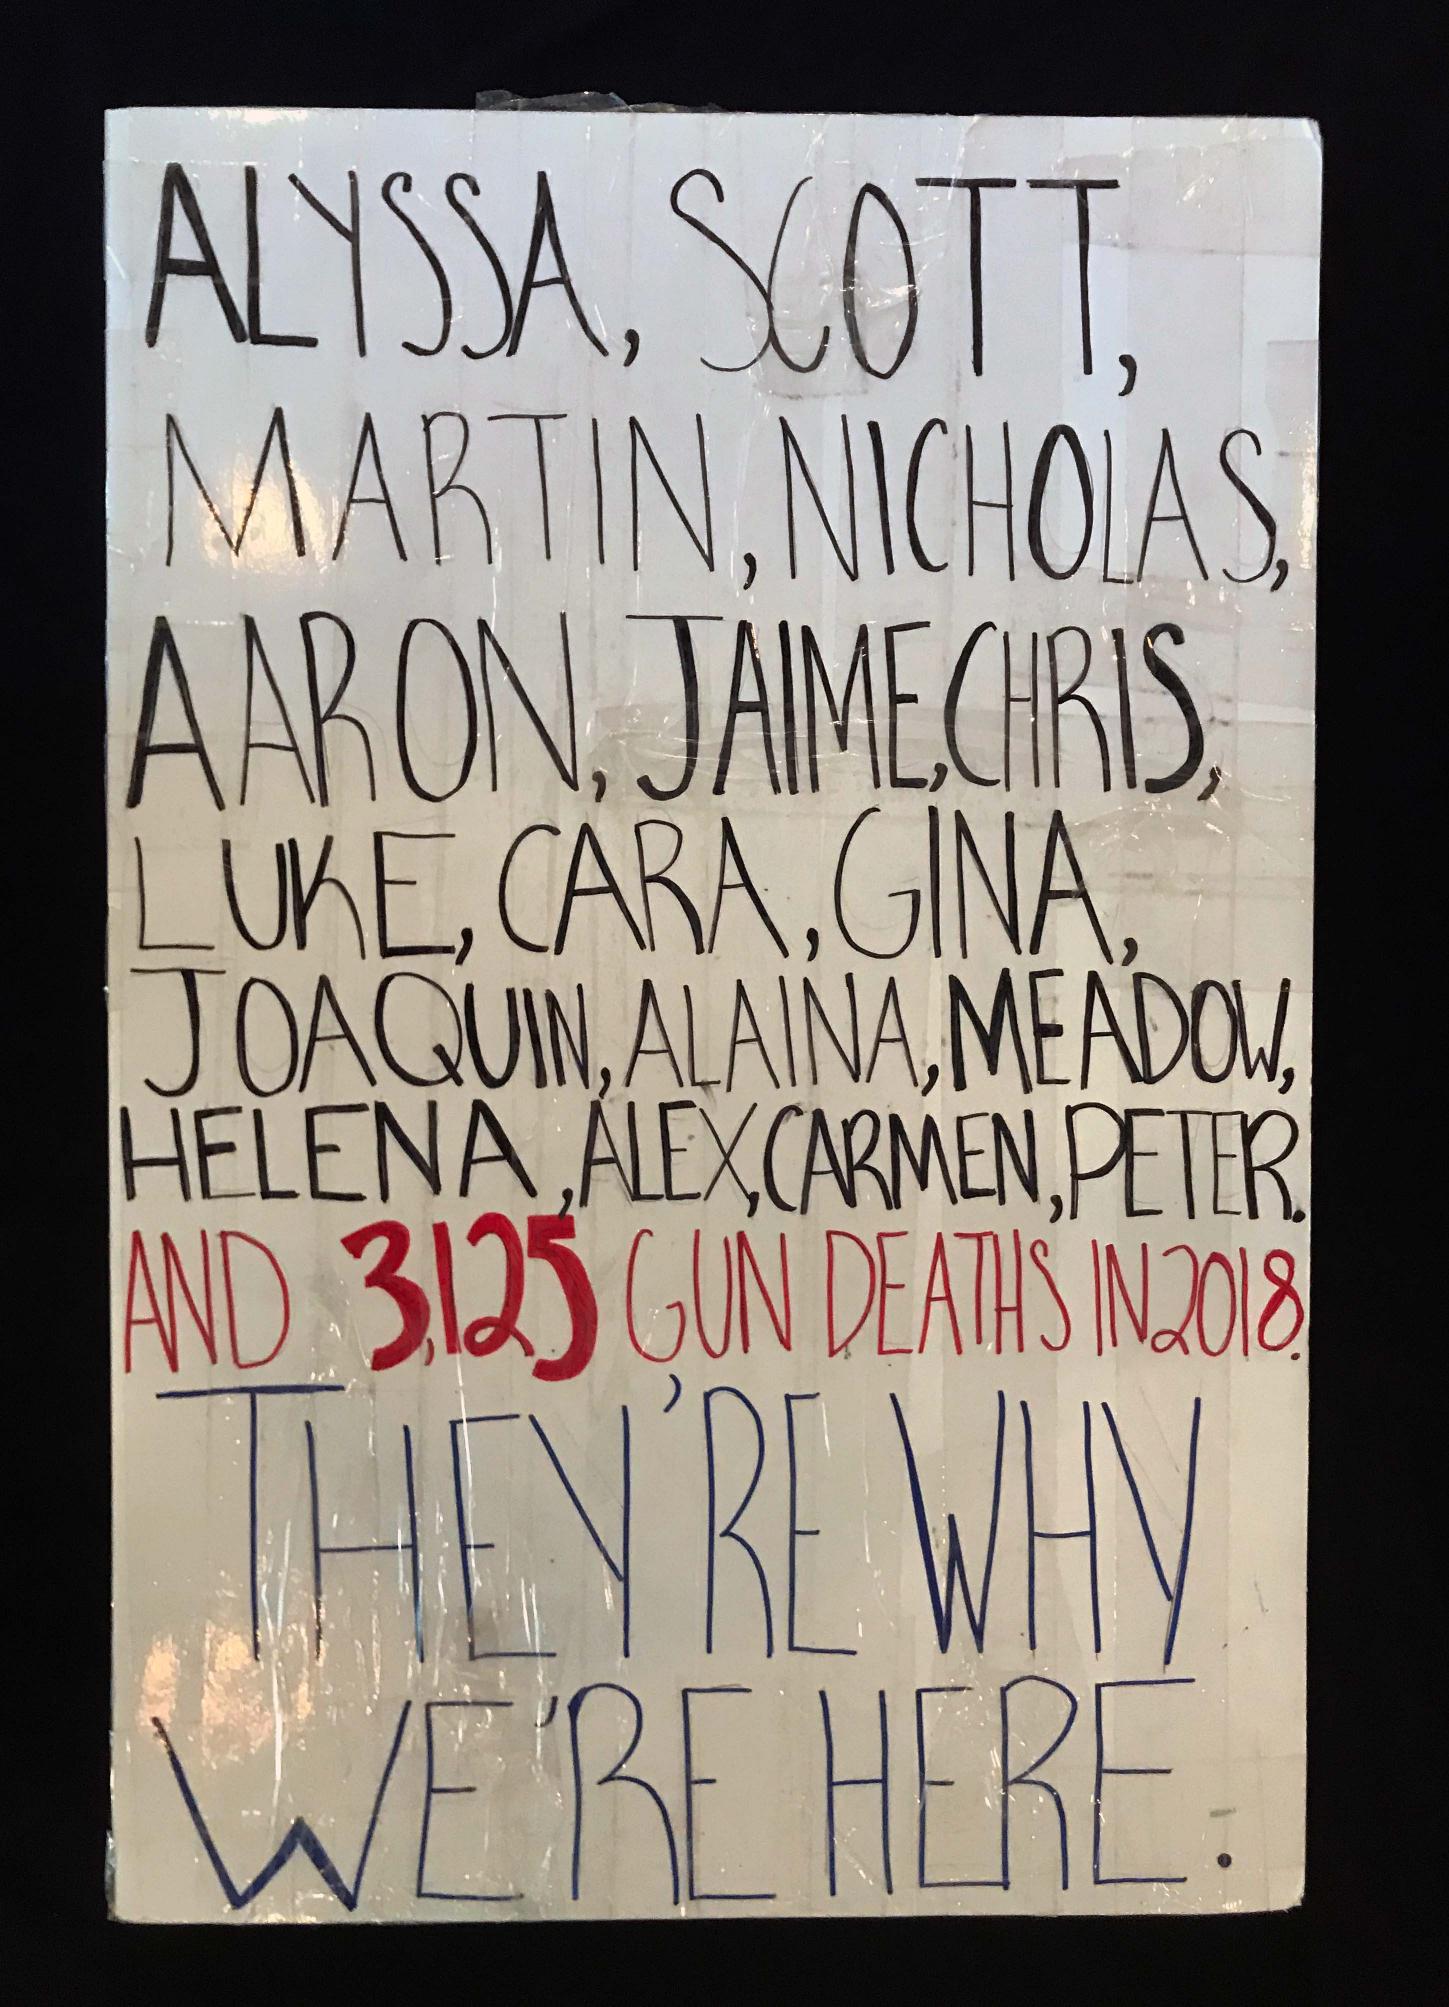 ALYSSA, SCOTT,
MARTIN, NICHOLAS,
AARON, JAIME, CHRIS,
LUKE, CARA, GINA,
JOAQUIN, ALAINA, MEADOW,
HELENA, ALEX, CARMEN, PETER.
AND 3,125 GUN DEATHS IN 2018.
THEY'RE WHY
WE'RE HERE.